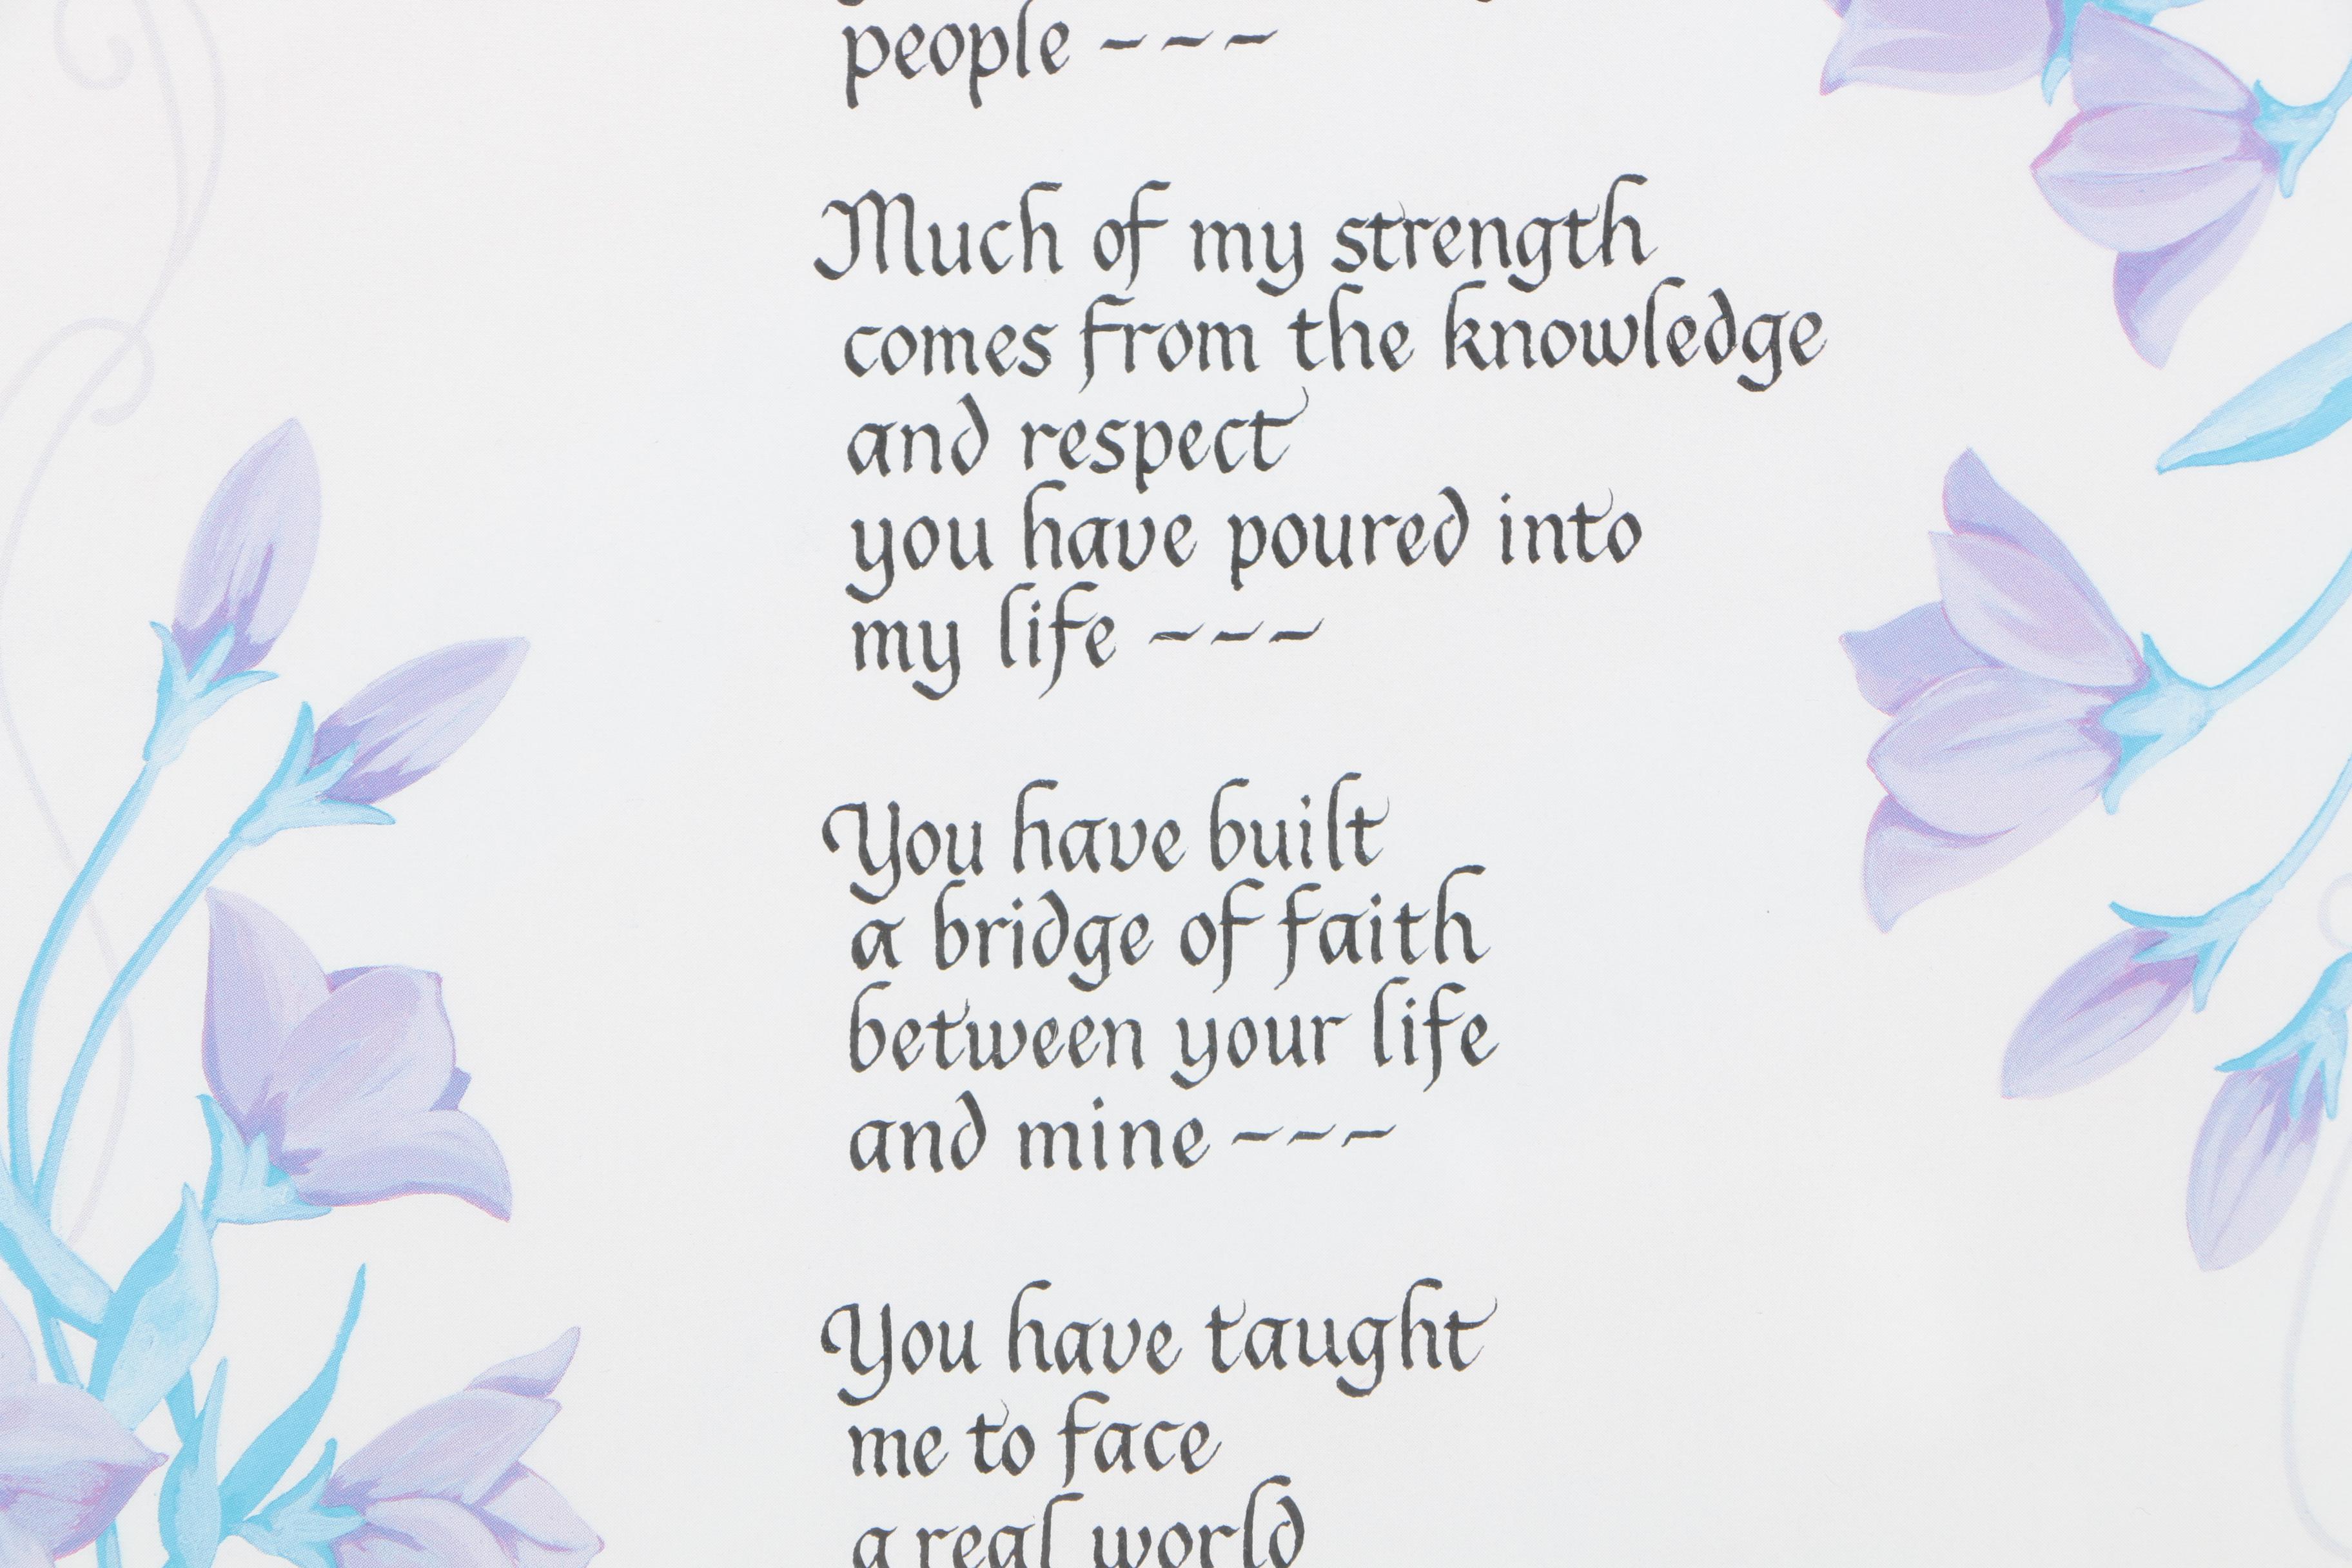 people ~~~
Much of my strength
comes from the knowledge
and respect
you have poured into
my life ~~~
You have built
a bridge of faith
between your life
and mine ~~~
You have taught
me to face
a real world